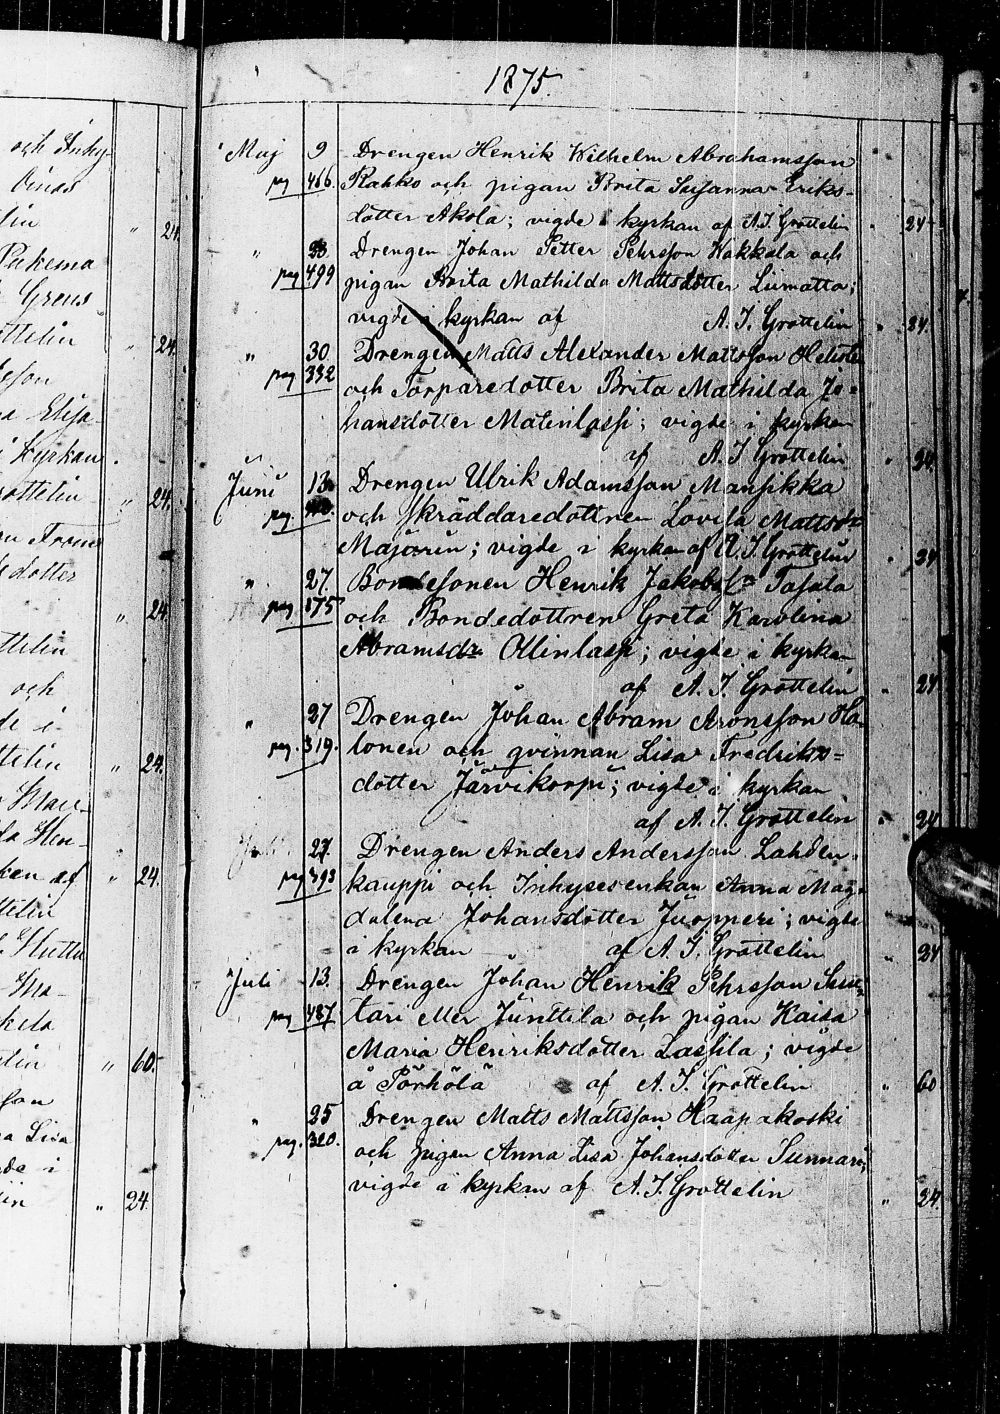 och Inhy-
lin " 24.
Pukema
Grens
ottelin " 24.
sson
a Elisa-
i kyrkan
ottelin " 24.
dotter
" 24.
ttelin
och
de i
ttelin " 24.
da Hen-
ken af " 24.
ttelin
Ma-
lin " 60.
son
a Lisa
de i
lin " 24.
1875.
Maj 9 Drengen Henrik Wilhelm Abrahamsson
pag 466. Rahko och pigan Brita Susanna Eriks-
dotter Akola; vigde i kyrkan af A. I. Grottelin " 24
" Drengen Johan Petter Pehrsson Kakkola och
pag 499 pigan Brita Mathilda Mattsdotter Liimatta;
vigde i kyrkan af A. I. Grottelin " 24.
" 30 Drengen Matts Alexander Mattsson
pag 332 och Torparedotter Brita Mathilda Jo-
hansdotter Matinlassi; vigde i kyrkan
af A. I. Grottelin " 24
Juni 13. Drengen Ulrik Adamsson Mansikka
pag. och Skräddaredottren Lovisa Mattsdr
Majurin; vigde i kyrkan af A. I. Grottelin " 24
" 27. Bondesonen Henrik Jakobsson Tasala
pag 175 och Bondedottren Greta Karolina
Abramsdr Ollinlassi; vigde i kyrkan
af A. I. Grottelin " 24
" 27 Drengen Johan Abram Aronsson Ha-
pag. 319. lonen och qvinnan Lisa Fredriks-
dotter Järvikorpi; vigde i kyrkan
af A. I. Grottelin " 24
27. Drengen Anders Andersson Lahden-
pag 393 kauppi och Inhysesenkan Anna Mag-
dalena Johansdotter Juopperi; vigde
i kyrkan af A. I. Grottelin " 24
Juli 13. Drengen Johan Henrik Pehrsson
pag 487. tari eller Junttila och pigan Kaisa
Maria Henriksdotter Lassila; vigde
å Pörhölä af A. I. Grottelin " 60
" 25 Drengen Matts Mattsson Haapakoski
pag. 320. och pigan Anna Lisa Johansdotter Sunnari;
vigde i kyrkan af A. I. Grottelin " 24.